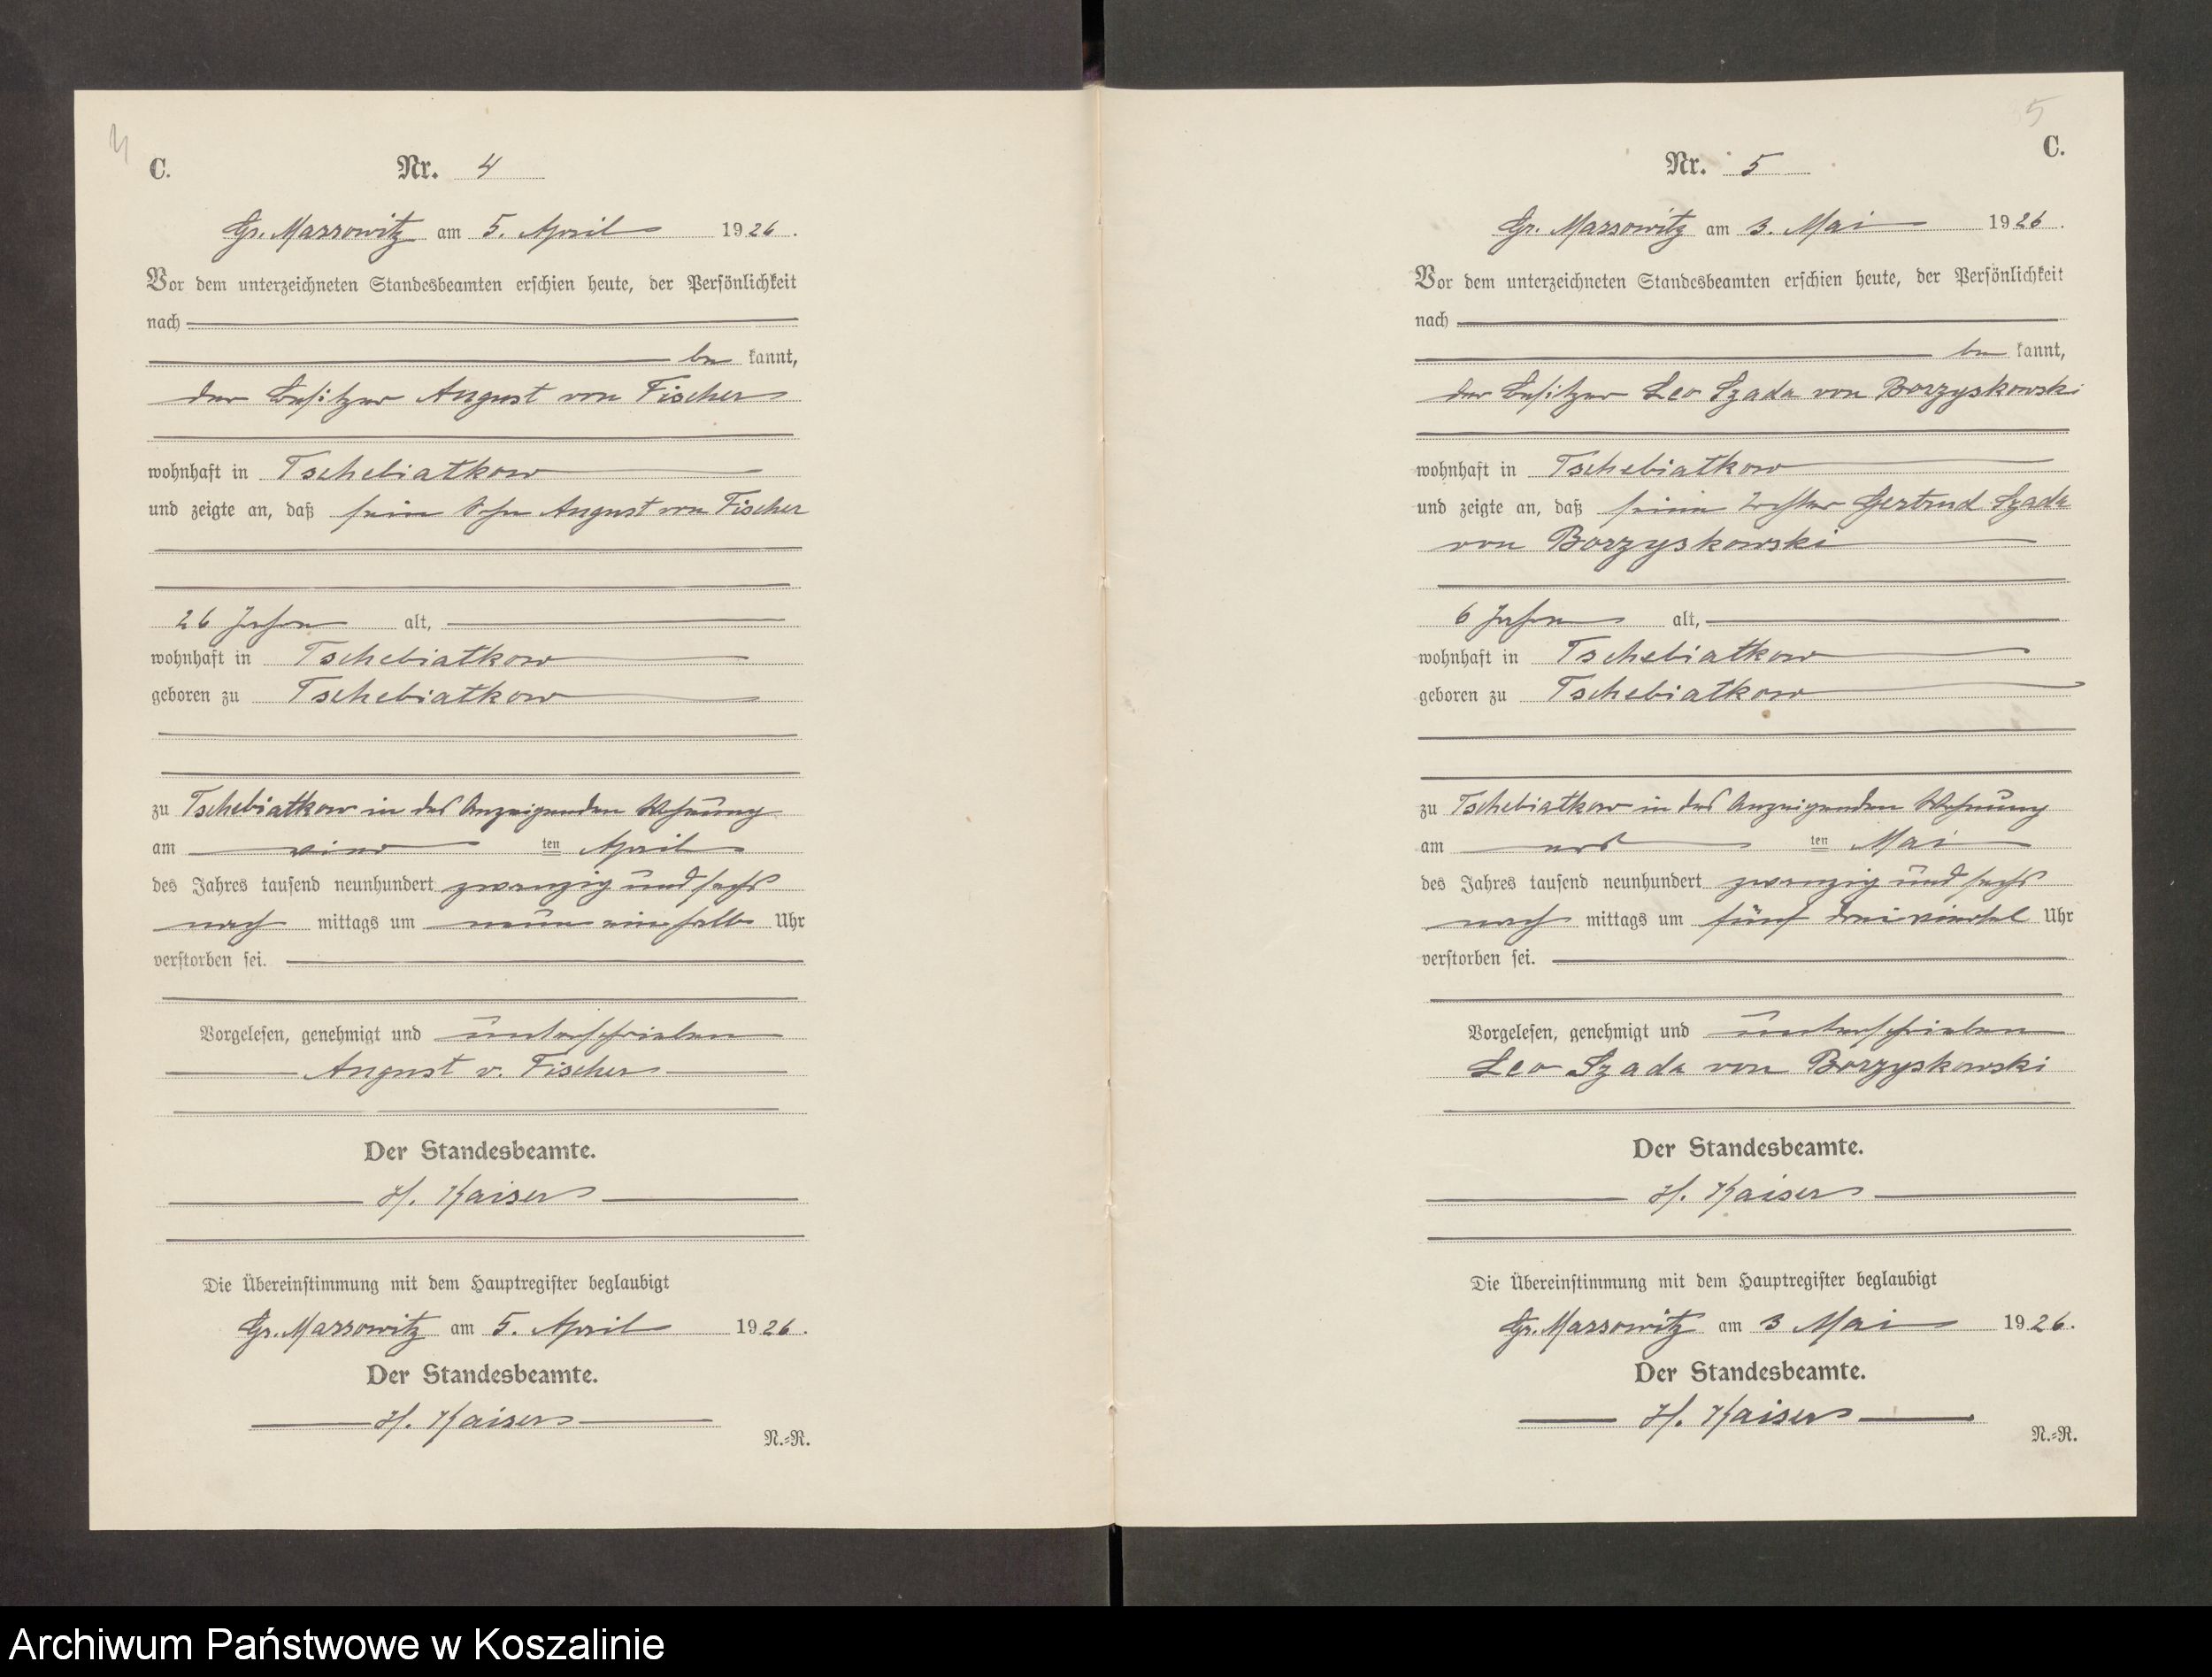 4
C.
Nr. 4
Gr. Massowitz am 5. April 1926.
Vor dem unterzeichneten Standesbeamten erschien heute, der Persönlichkeit
nach
be kannt,
der Besitzer August von Fischer
wohnhaft in Tschebiatkow
und zeigte an, daß sein Sohn August von Fischer
26 Jahre alt,
wohnhaft in Tschebiatkow
geboren zu Tschebiatkow
zu Tschebiatkow in des Anzeigenden Wohnung
am vier ten April
des Jahres tausend neunhundert zwanzig und sechs
nach mittags um neun ein halb Uhr
verstorben sei.
Vorgelesen, genehmigt und unterschrieben
August v. Fischer
Der Standesbeamte.
H. Kaiser
Die Übereinstimmung mit dem Hauptregister beglaubigt
Gr. Massowitz am 5. April 1926.
Der Standesbeamte.
H. Kaiser
N.=R.
5
C.
Nr. 5
Gr. Massowitz am 3. Mai 1926.
Vor dem unterzeichneten Standesbeamten erschien heute, der Persönlichkeit
nach
be kannt,
der Besitzer Leo Szada von Borzyskowski
wohnhaft in Tschebiatkow
und zeigte an, daß seine Tochter Gertrud Szada
von Borzyskowski
6 Jahre alt,
wohnhaft in Tschebiatkow
geboren zu Tschebiatkow
zu Tschebiatkow in des Anzeigenden Wohnung
am ers ten Mai
des Jahres tausend neunhundert zwanzig und sechs
nach mittags um fünf dreiviertel Uhr
verstorben sei.
Vorgelesen, genehmigt und unterschrieben
Leo Szada von Borzyskowski
Der Standesbeamte.
H. Kaiser
Die Übereinstimmung mit dem Hauptregister beglaubigt
Gr. Massowitz am 3 Mai 1926.
Der Standesbeamte.
H. Kaiser
N.=R.
Archiwum Państwowe w Koszalinie